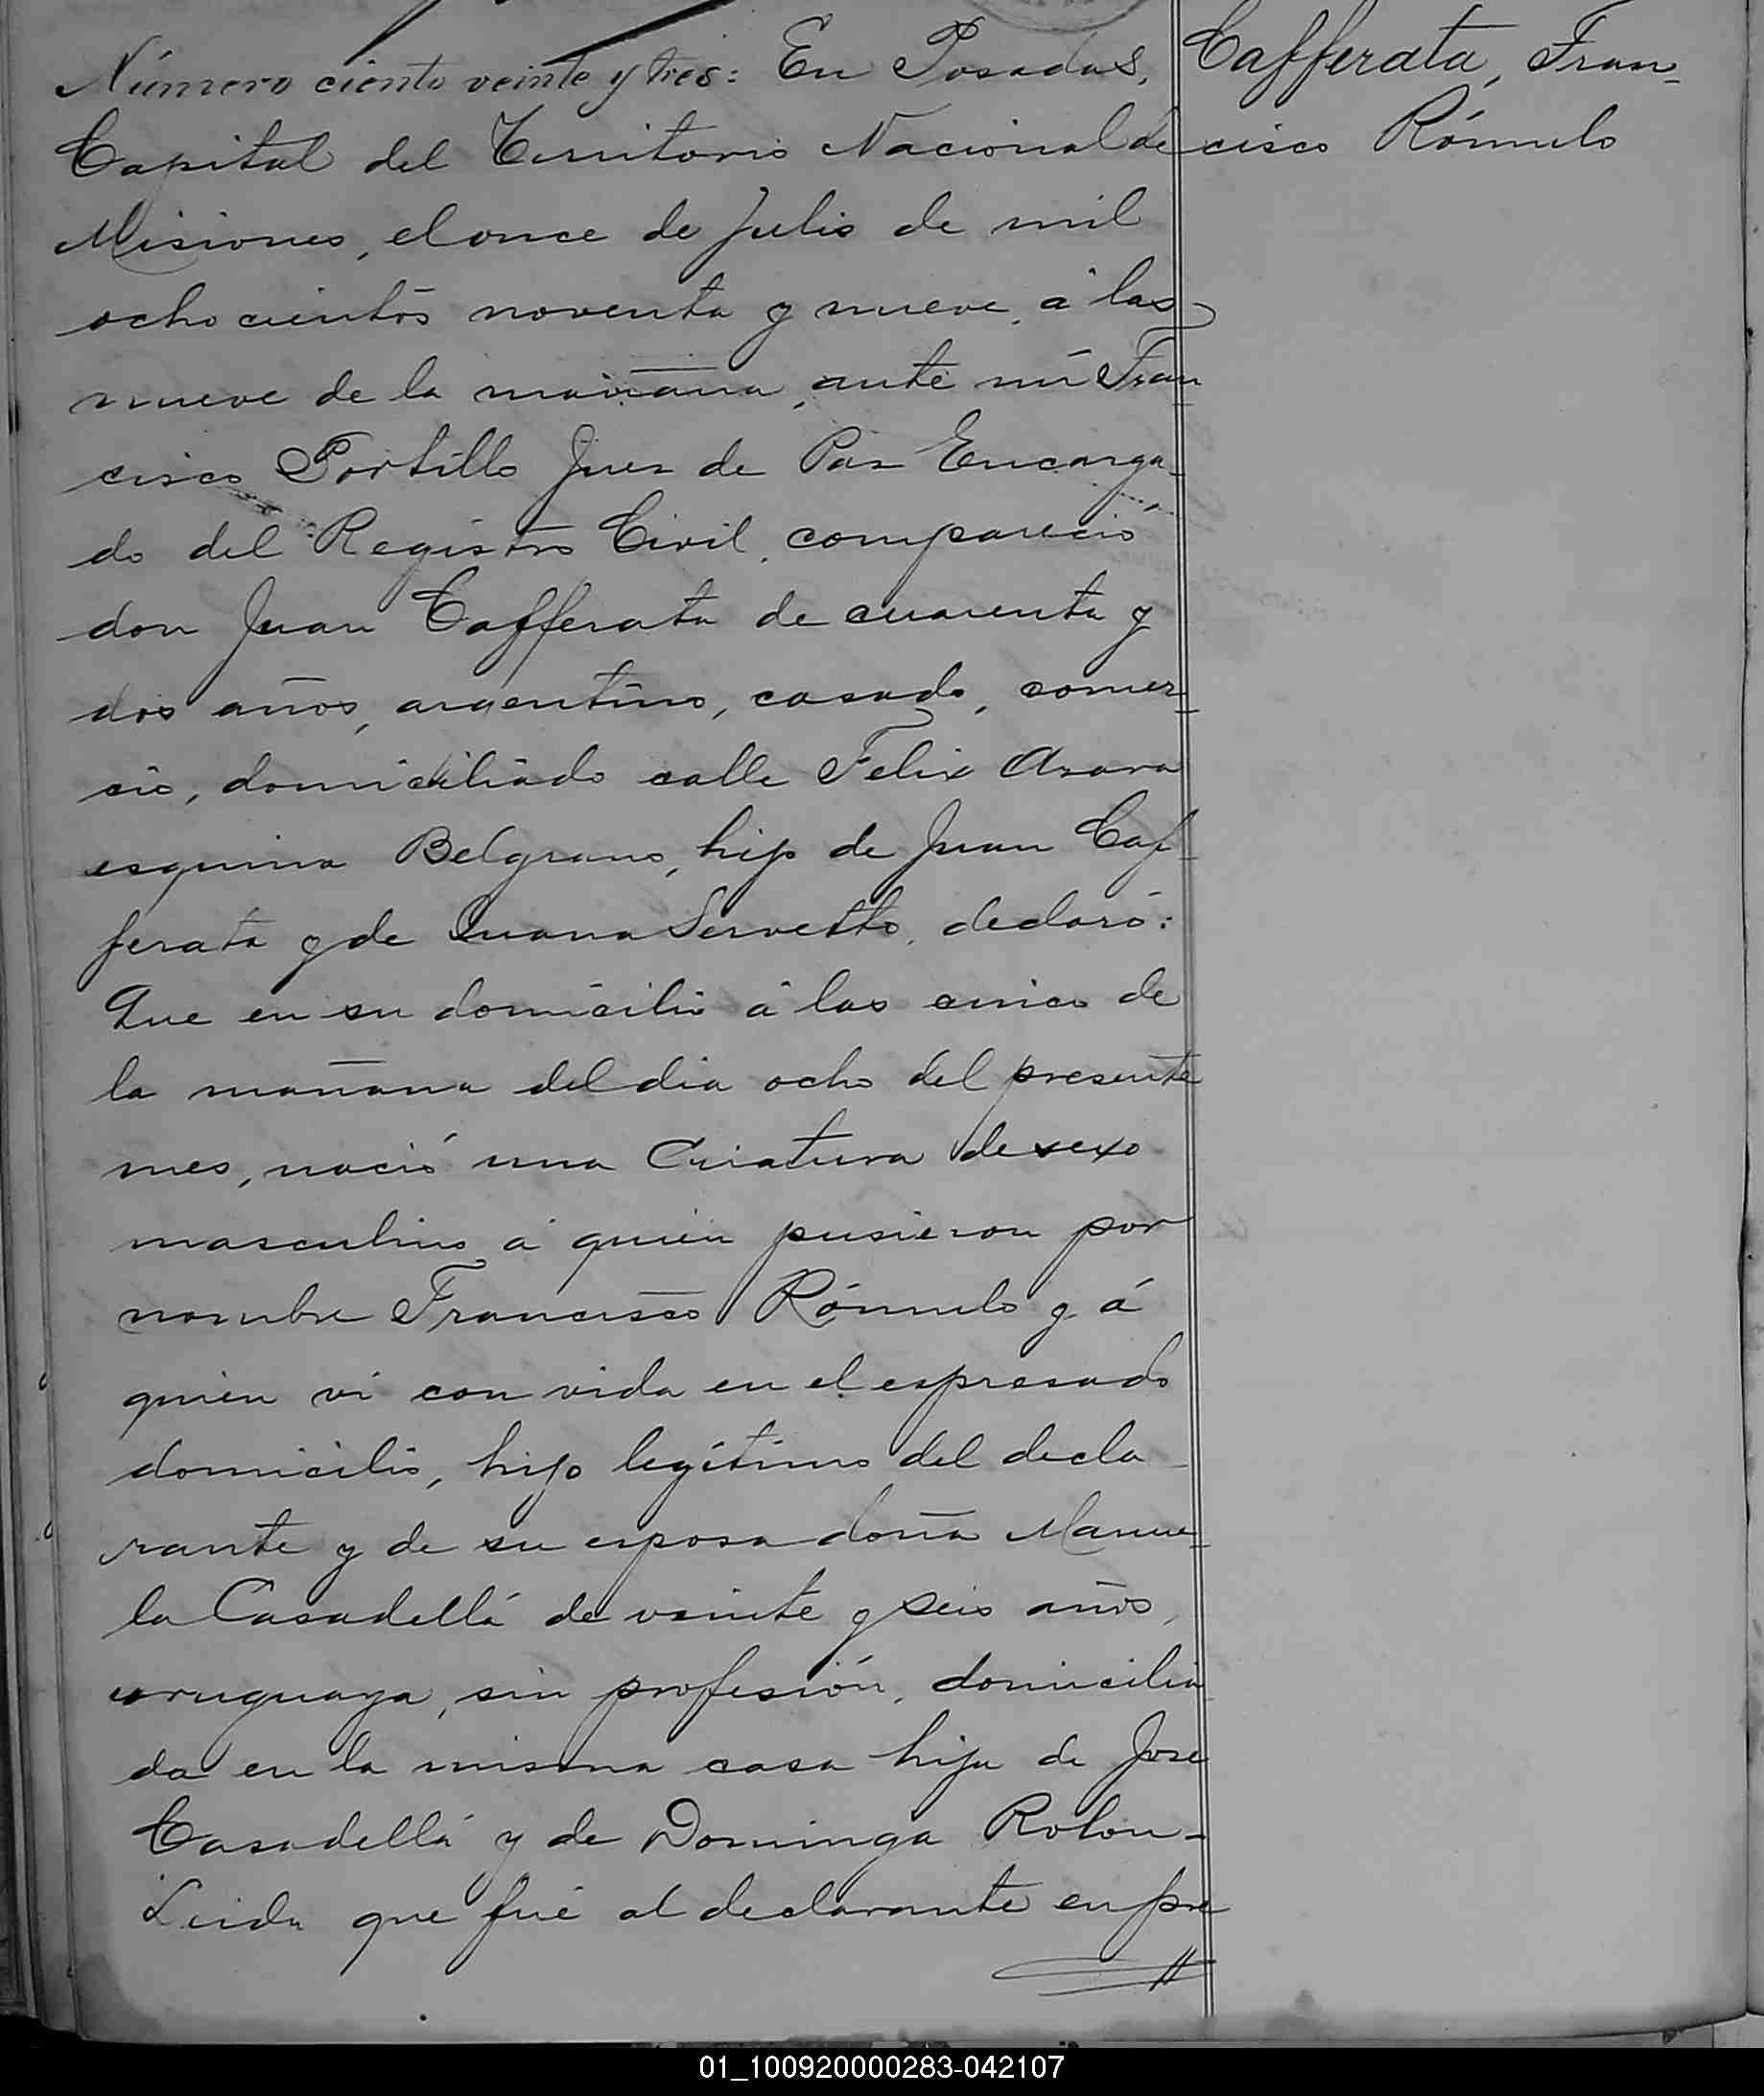 Número ciento veinte y tres: En Posadas,
Capital del Territorio Nacional de
Misiones, el once de Julio de mil
ochocientos noventa y nueve, á las
nueve de la mañana, ante mí Fran
cisco Portillo Juez de Paz Encarga-
do del Registro Civil, compareció
don Juan Cafferata de cuarenta y
dos años, argentino, casado, comer-
cio, domiciliado calle Felix Azara
esquina Belgrano, hijo de Juan Caf-
ferata y de Juana Servetto, declaró:
Que en su domicilio á las cinco de
la mañana del dia ocho del presente
mes, nació una Criatura de sexo
masculino á quien pusieron por
nombre Francisco Rómulo y á
quien vi con vida en el espresado
domicilio, hijo legítimo del decla-
rante y de su esposa doña Manue-
la Casadellá de veinte y seis años,
uruguaya, sin profesión, domicilia
da en la misma casa hija de José
Casadellá y de Dominga Rolon-
Leida que fué al declarante en pre
Cafferata, Fran-
cisco Rómulo
01_100920000283-042107